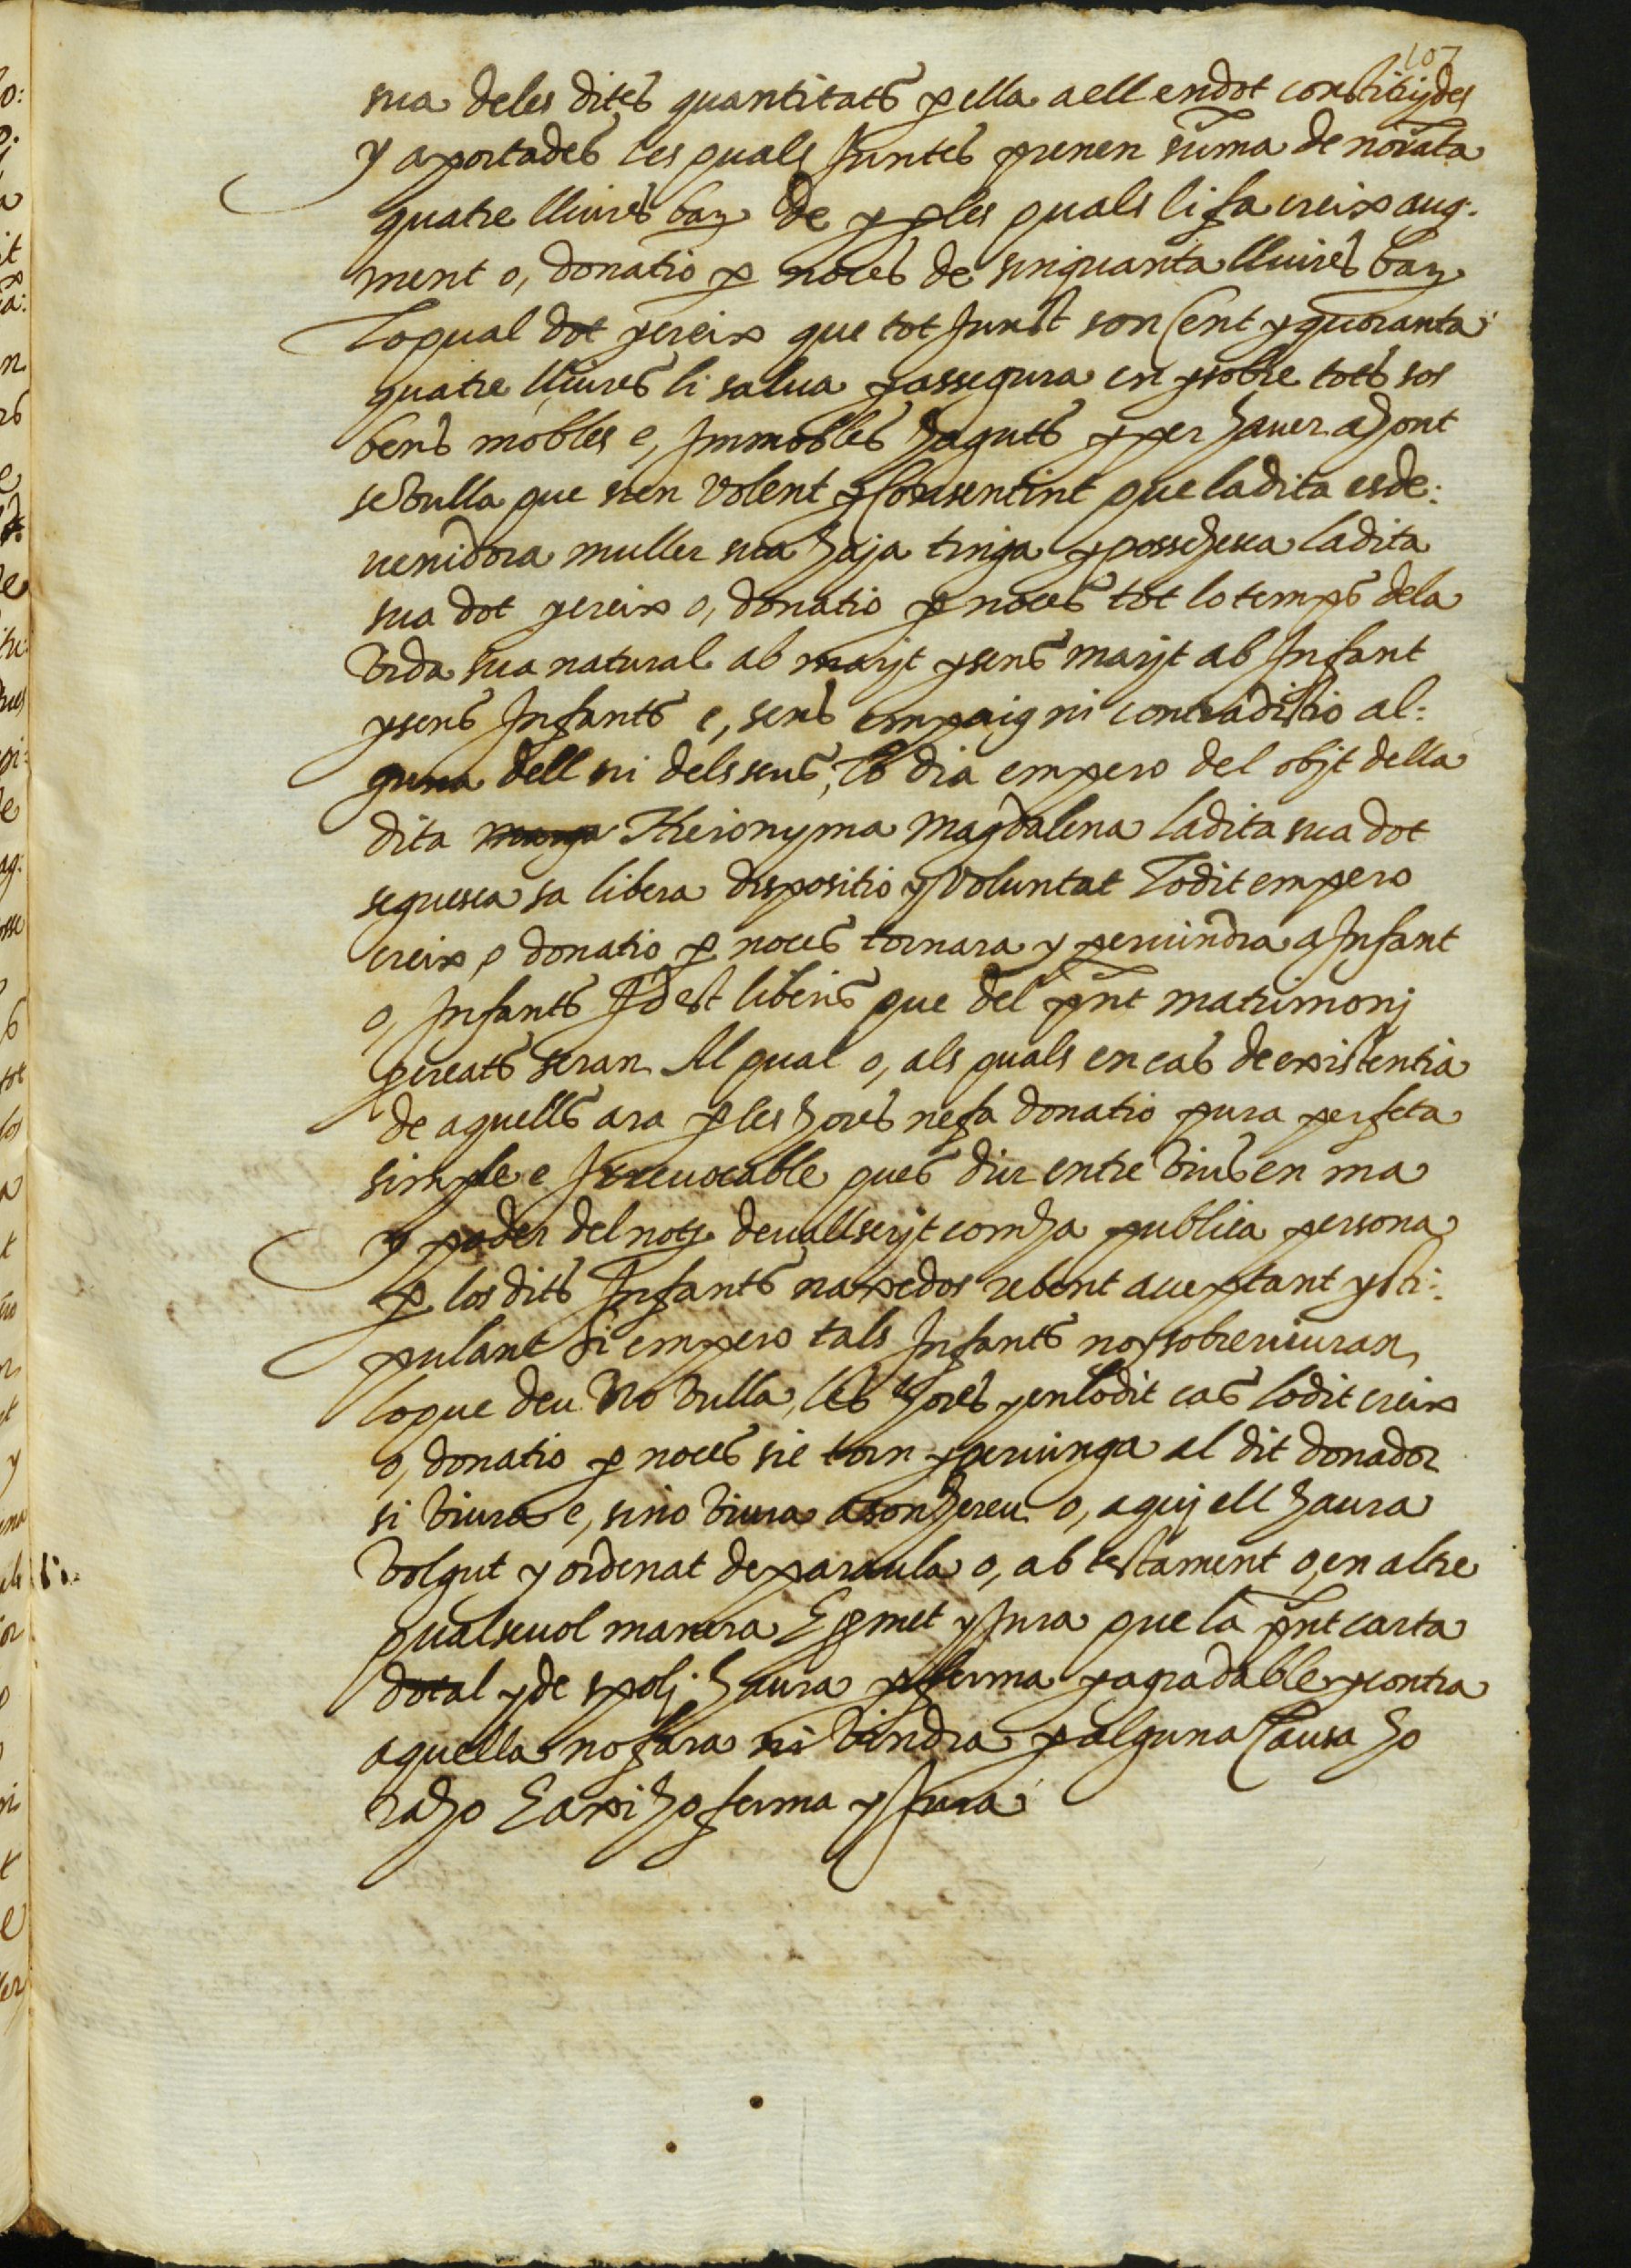 107
sua deles dites quantitats p ella a ell en dot constituydes
y aportades les quals juntes prenen suma de noranta
quatre lliures bar. de y p les quals li fa creix aug:
ment o, donatio p noces de sinquanta lliures bar.
Lo qual dot y creix que tot junct son Cent y quoranta
quatre lliures li salua y assegura en y sobre tots sos
bens mobles e, Immobles haguts y per hauer a hont
se vulla que sien volent y Consentint que la dita esde:
uenidora muller sua haja tinga y possehesca la dita
sua dot y creix o, donatio p noces tot lo temps dela
vida sua natural ab marjt y sens marjt ab Infant
y sens Infants e, sens empaig ni contradictio al:
guna dell ni dels seus, Lo dia empero del objt della
dita Hieronyma Magdalena la dita sua dot
seguesca sa libera dispositio y voluntat Lo dit empero
creix o donatio p noces tornara y peruindra a Infant
o, Infants Id est liberis que del pnt matrimonj
pcreats seran Al qual o, als quals en cas de existentia
de aquells ara p les hores ne fa donatio pura perfeta
simple e Irreuocable ques diu entre vius en ma
y poder del not. deuall scrjt com ha publica persona
p los dits Infants naxedos rebent acceptant y sti:
pulant Si empero tals Infants no y sobreviuran
lo que deu No vulla, les hores y en lo dit cas lo dit creix
o, donatio p noces sie torn y peruinga al dit donador
si viura e, sino viura a son hereu o, a quj ell haura
volgut y ordenat de paraula o, ab testament o, en altre
qualseuol manera E pmet y Jura que la pnt carta
dotal y de spolj haura p ferma y agradable y contra
aquella no fara ni vindra p alguna Causa ho
raho E axi ho ferma y Jura